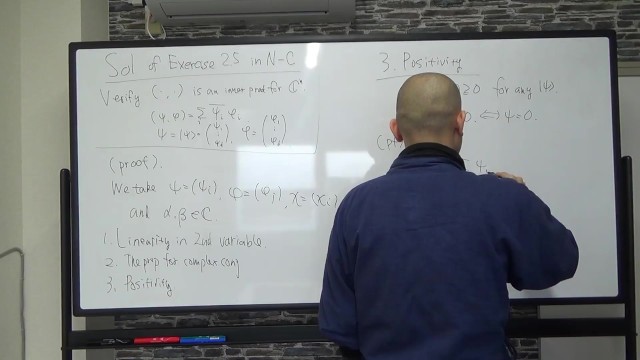 Sol of Exercise 2.5 in N-C
Verify (·,·) is an inner prod for ℂⁿ.
(ψ, φ) = Σ ψ̄ᵢ φᵢ
ψ = |ψ> = (ψ₁ ⋮ ψd), φ = (φ₁ ⋮ φd)
(proof).
We take ψ = (ψᵢ), φ = (φⱼ), χ = (χᵢ)
and α, β ∈ ℂ.
1. Linearity in 2nd variable.
2. The prop for complex conj
3. Positivity
3. Positivity
≥0 for any |ψ>.
0. ⟺ ψ = 0.